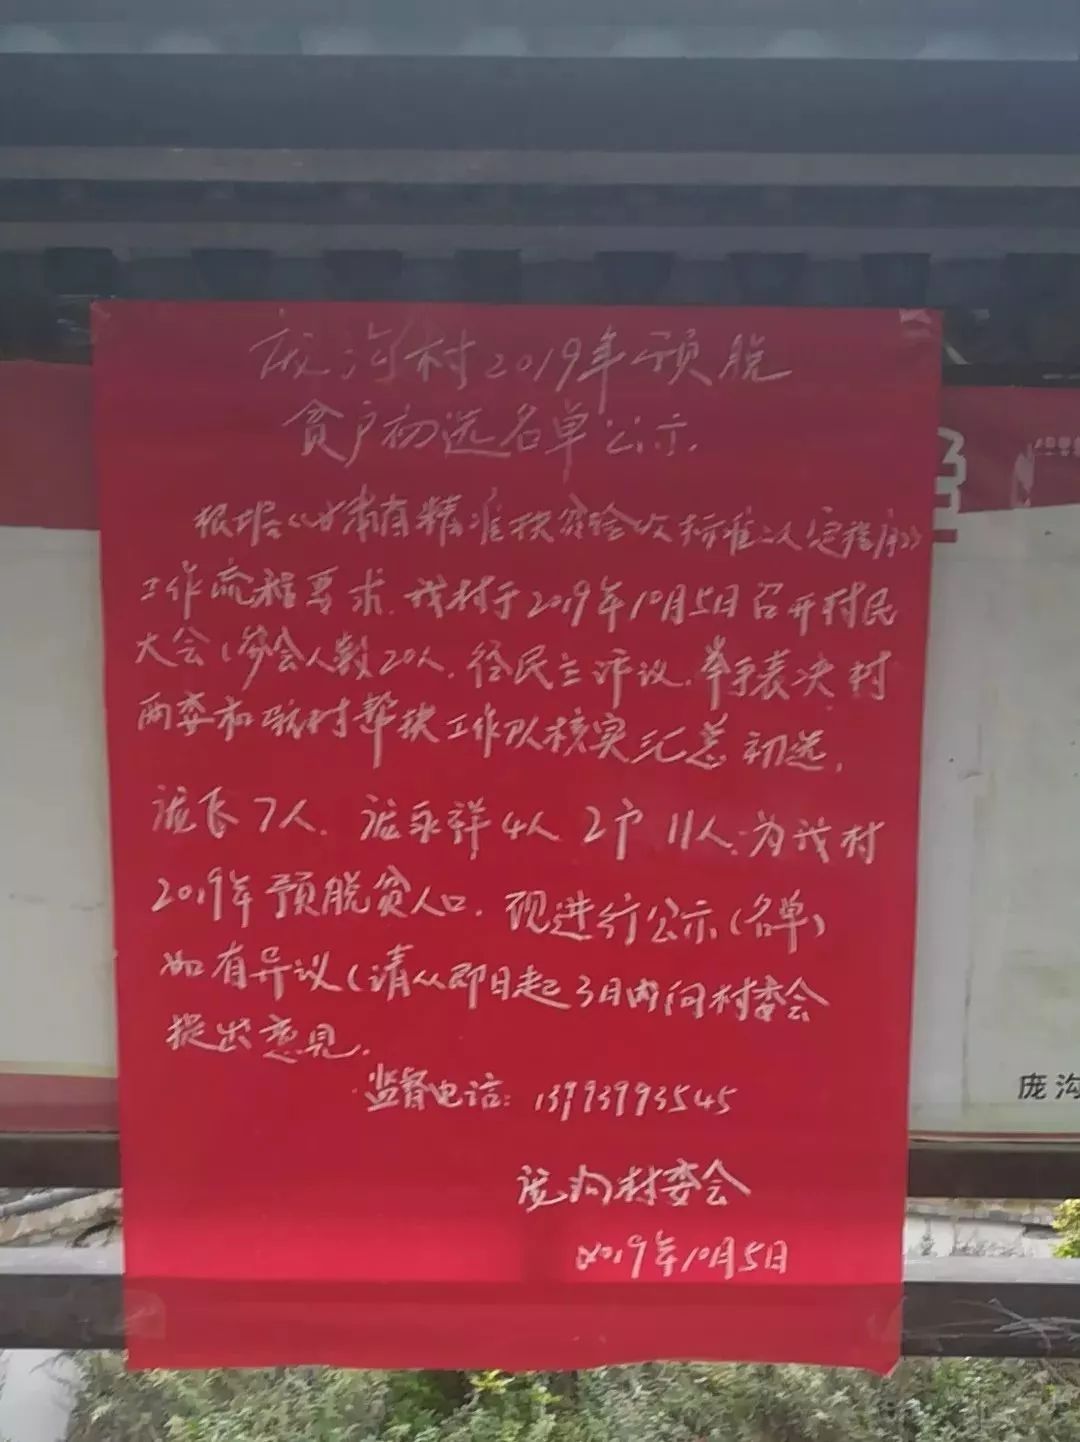 庞沟村2019年预脱
贫户初选名单公示.
根据《甘肃省精准扶贫验收标准认定程序》
工作流程要求.我村于2019年10月5日召开村民
大会(参会人数20人.经民主评议.举手表决村
两委和驻村帮扶工作队核实汇总初选.
庞飞7人. 庞永祥4人 2户 11人.为我村
2019年预脱贫人口.现进行公示(名单)
如有异议(请从即日起3日内向村委会
提出意见.
监督电话: 13993993545
庞沟村委会
2019年10月5日
庞沟